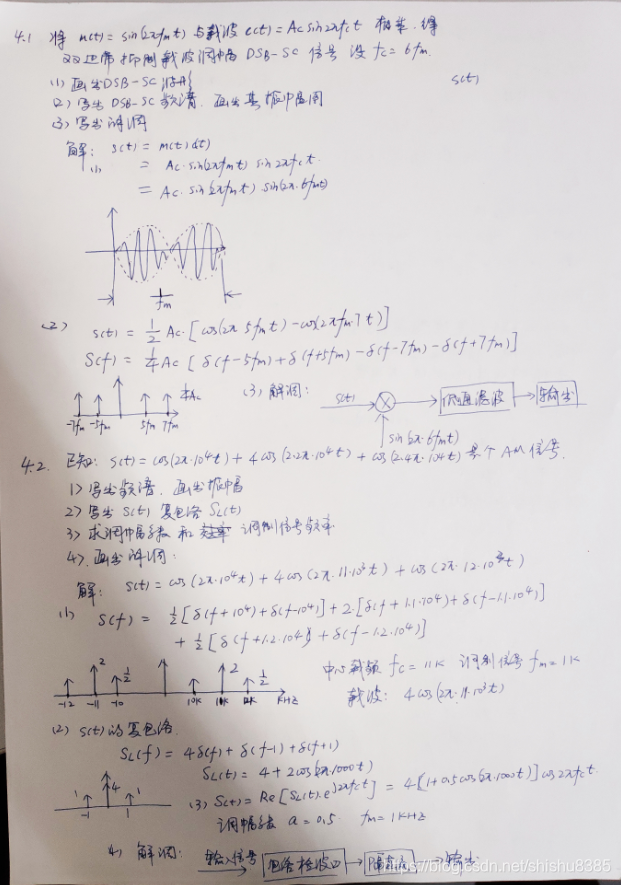 4.1 将 m(t) = sin(2πfmt) 与载波 c(t) = Ac sin2πfct 相乘, 得
双边带抑制载波调幅 DSB-SC 信号 设 fc = 6fm.
(1) 画出DSB-SC波形
s(t)
(2) 写出 DSB-SC 频谱. 画出其振幅图
(3) 写出解调
解: s(t) = m(t)
(1) = Ac·sin(2πfmt) sin2πfct.
= Ac·sin(2πfmt) sin(2π·6fmt)
1/fm
(2) s(t) = 1/2 Ac·[cos(2π5fmt) - cos(2πfm·7t)]
S(f) = 1/4 Ac [δ(f-5fm) + δ(f+5fm) - δ(f-7fm) - δ(f+7fm)]
1/4 Ac
-7fm -5fm 5fm 7fm
(3) 解调:
s(t) × 低通滤波 输出
sin(2π·6fmt)
4.2. 已知: s(t) = cos(2π·10⁴t) + 4cos(2·2π·10⁴t) + cos(2·4π·10⁴t) 是个 AM 信号.
1) 写出频谱. 画出振幅
2) 写出 s(t) 复包络 SL(t)
3) 求调幅系数 和 调制信号频率
4) 画出解调:
解: s(t) = cos(2π·10⁴t) + 4cos(2π·11·10³t) + cos(2π·12·10³t)
(1) S(f) = 1/2[δ(f+10⁴) + δ(f-10⁴)] + 2·[δ(f+1.1·10⁴) + δ(f-1.1·10⁴)]
+ 1/2[δ(f+1.2·10⁴) + δ(f-1.2·10⁴)]
2 1/2 2 1/2
-12 -11 -10 10K 11K 12K KHZ
中心载频 fc = 11K 调制信号 fm = 1K
载波: 4cos(2π·11·10³t)
(2) s(t)的复包络.
SL(f) = 4δ(f) + δ(f-1) + δ(f+1)
SL(t) = 4 + 2cos(2π·1000t)
1 4 1
-1 1
(3) S(t) = Re[SL(t)·e^j2πfct] = 4[1+0.5cos(2π·1000t)]cos2πfct.
调幅系数 a = 0.5. fm = 1KHZ
4) 解调: 输入信号 包络检波 隔直流 输出
https://blog.csdn.net/shishu8385